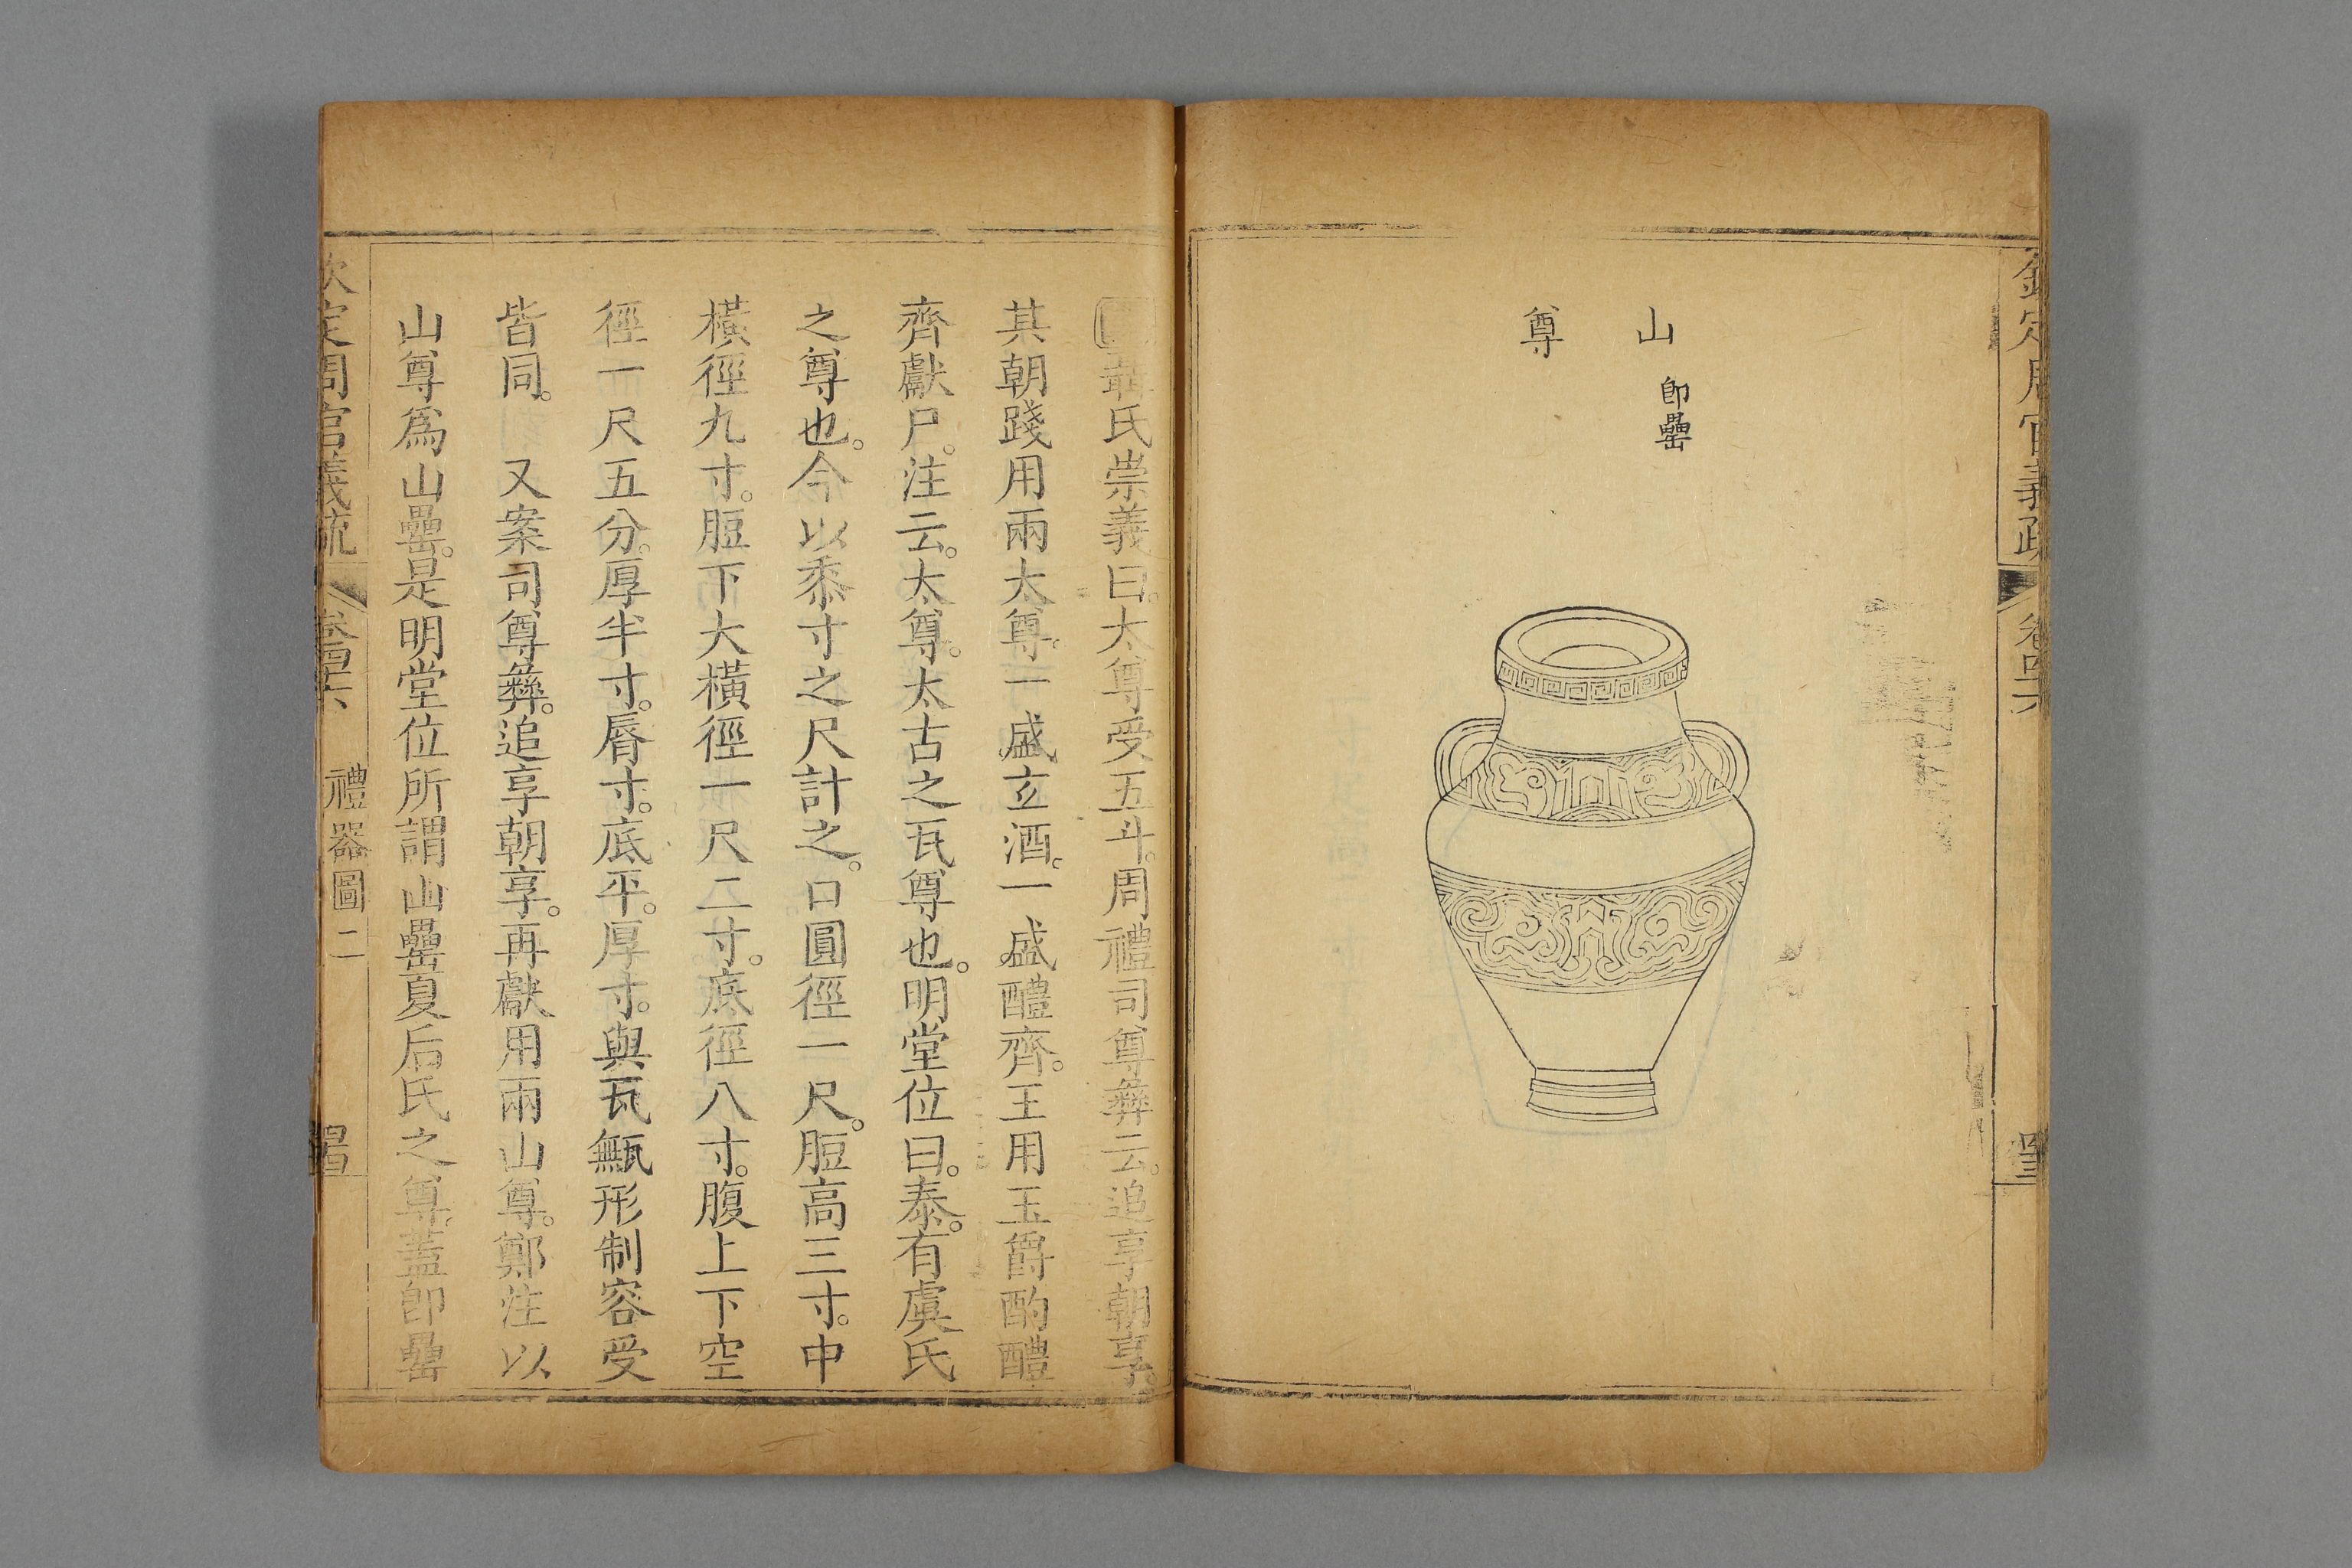 欽定周官義疏 卷四十六 四三
山 即罍
尊
聶氏崇義曰。太尊受五斗。周禮司尊彝云。追享朝享。
其朝踐用兩大尊。一盛玄酒。一盛醴齊。王用玉爵酌醴
齊獻尸。注云。太尊。太古之瓦尊也。明堂位曰。泰。有虞氏
之尊也。今以黍寸之尺計之。口圓徑一尺。脰高三寸。中
橫徑九寸。脰下大橫徑一尺二寸。底徑八寸。腹上下空
徑一尺五分。厚半寸。脣寸。底平。厚寸。與瓦甒形制容受
皆同。 又案司尊彝。追享朝享。再獻用兩山尊。鄭注以
山尊爲山罍。是明堂位所謂山罍夏后氏之尊。蓋即罍
欽定周官義疏 卷四十六 禮器圖二